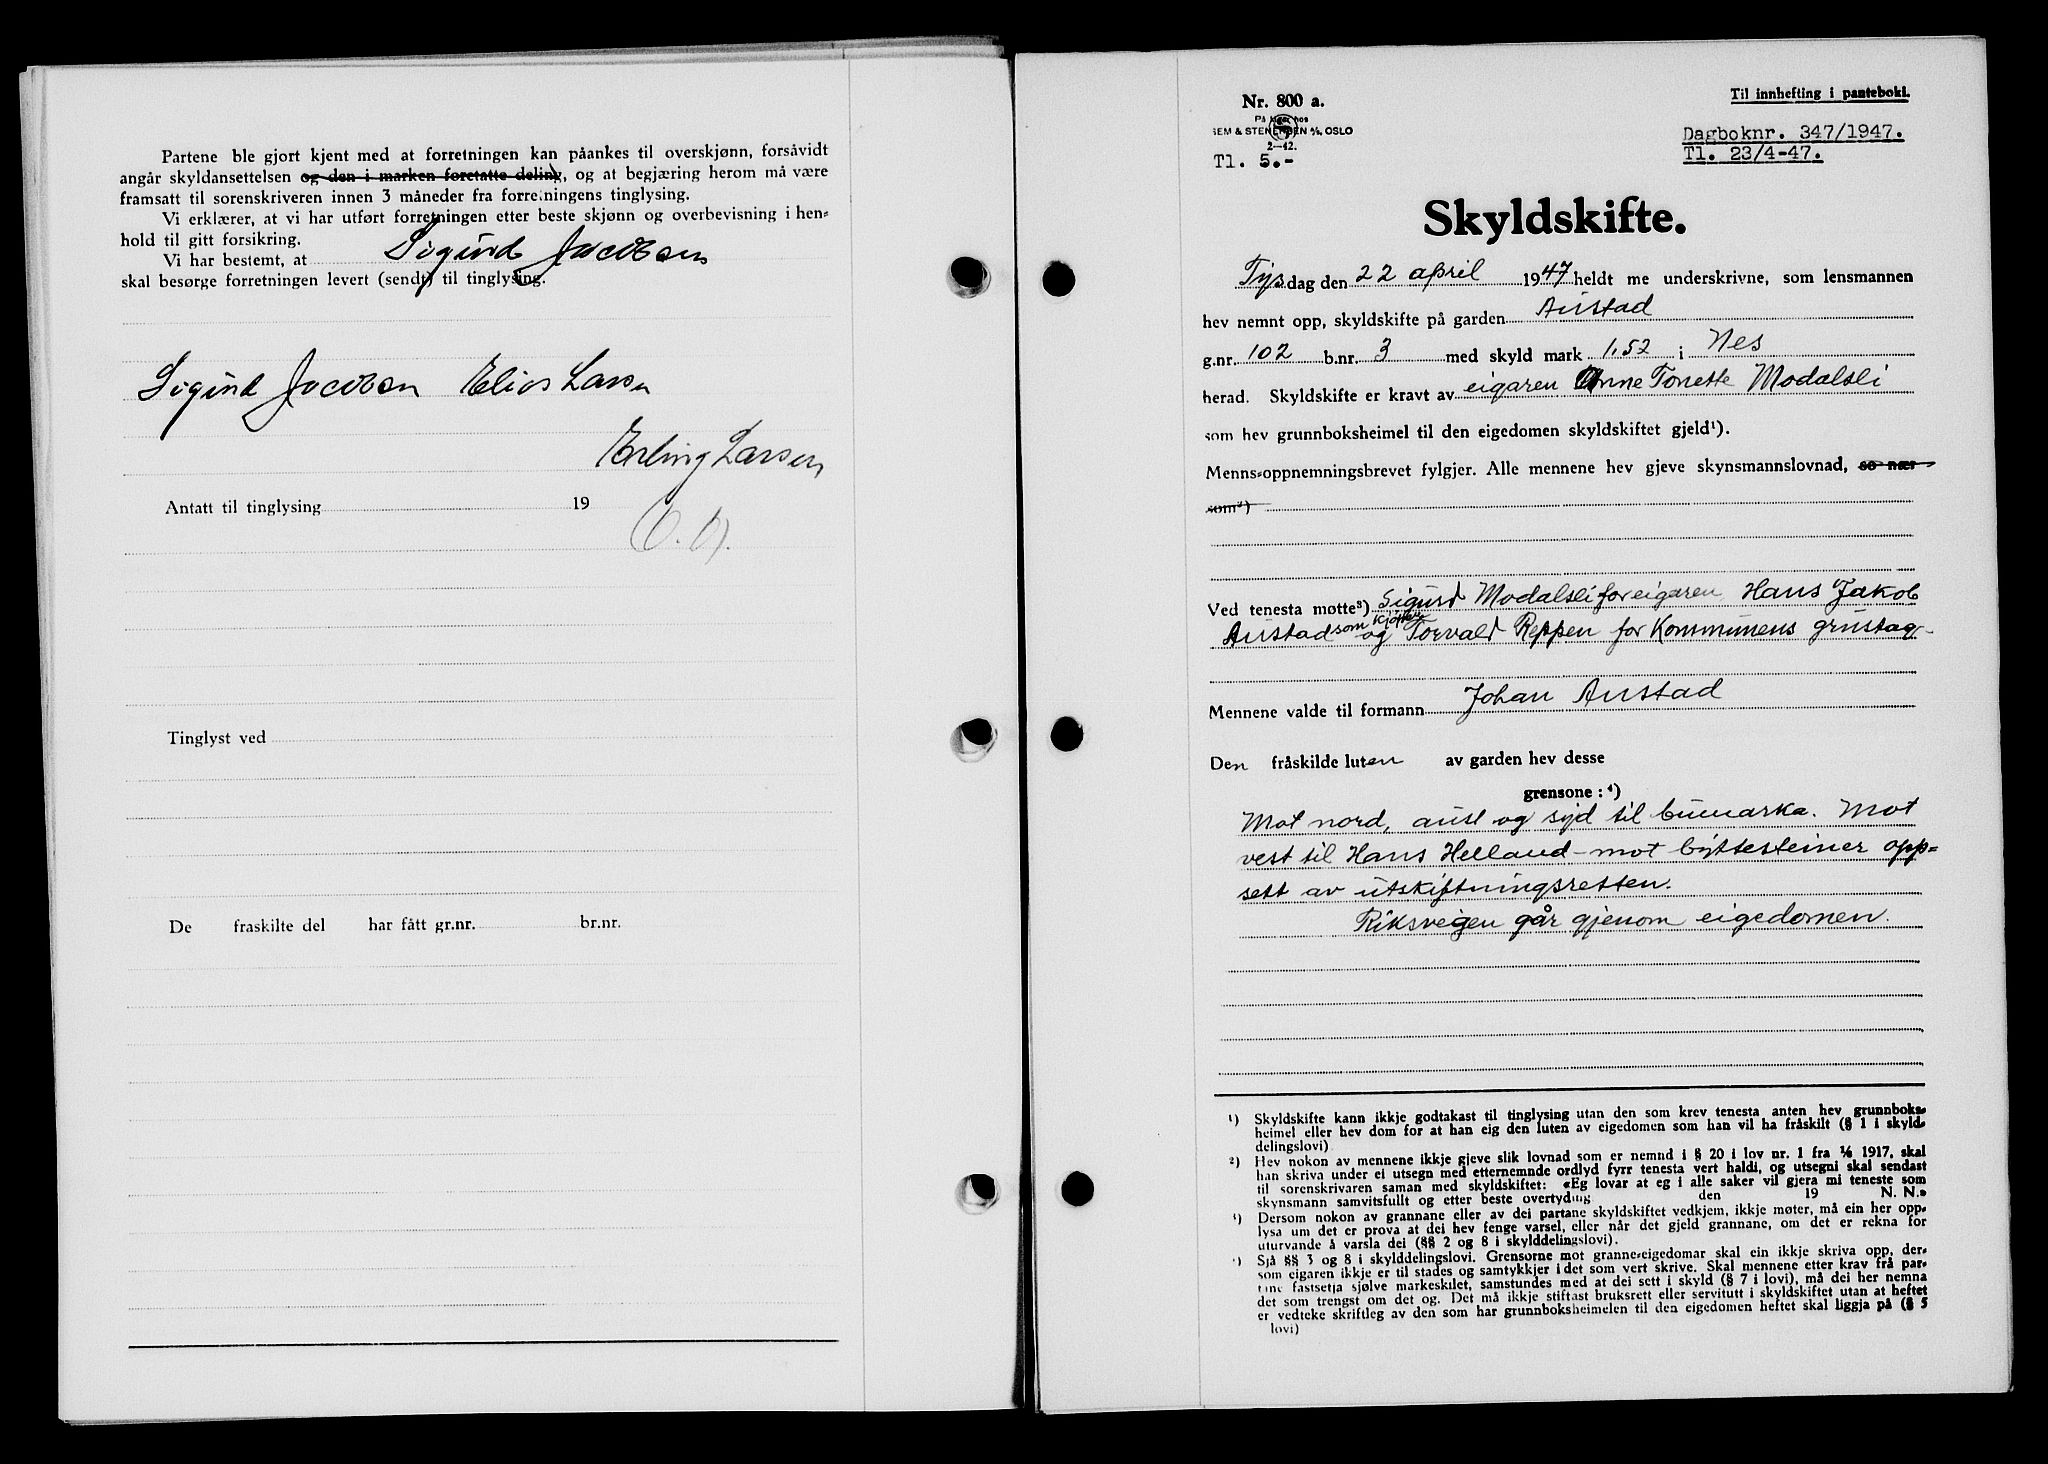 Partene ble gjort kjent med at forretningen kan påankes til overskjønn, forsåvidt
angår skyldansettelsen og den i marken foretatte deling, og at begjæring herom må være
framsatt til sorenskriveren innen 3 måneder fra forretningens tinglysing.
Vi erklærer, at vi har utført forretningen etter beste skjønn og overbevisning i hen-
hold til gitt forsikring.
Vi har bestemt, at Sigurd Jacobsen
skal besørge forretningen levert (sendt) til tinglysing.
Sigurd Jacobsen Elias Larsen
Erling Larsen
Antatt til tinglysing 19
Tinglyst ved
De fraskilte del har fått gr.nr. br.nr.
Nr. 800 a.
På lager hos
SEM & STENERSEN A/S, OSLO
2—42.
Tl. 5.-
Til innhefting i panteboki.
Dagboknr. 347/1947.
Tl. 23/4-47.
Skyldskifte.
Tysdag den 22 april 1947 heldt me underskrivne, som lensmannen
hev nemnt opp, skyldskifte på garden Austad
g.nr. 102 b.nr. 3 med skyld mark 1,52 i Nes
herad. Skyldskifte er kravt av eigaren Anne Tonette Modalsli
som hev grunnboksheimel til den eigedomen skyldskiftet gjeld¹).
Menns-oppnemningsbrevet fylgjer. Alle mennene hev gjeve skynsmannslovnad, so nær
som²)
Ved tenesta møtte³) Sigurd Modalsli for eigaren Hans Jakob
Austad som kjøper og Torvald Reppen for Kommunens grustag
Mennene valde til formann Johan Austad
Den fråskilde luten av garden hev desse
grensone :⁴)
Mot nord, aust og syd til bumarka. Mot
vest til Hans Helland - mot byttesteiner opp=
sett av utskiftningsretten.
Riksveigen går gjenom eigedomen.
¹) Skyldskifte kann ikkje godtakast til tinglysing utan den som krev tenesta anten hev grunnboks-
heimel eller hev dom for at han eig den luten av eigedomen som han vil ha fråskilt (§ 1 i skyld-
delingslovi)
²) Hev nokon av mennene ikkje gjeve slik lovnad som er nemnd i § 20 i lov nr. 1 fra 1/6 1917, skal
han skriva under ei utsegn med etternemnde ordlyd fyrr tenesta vert haldi, og utsegni skal sendast
til sorenskrivaren saman med skyldskiftet: «Eg lovar at eg i alle saker vil gjera mi teneste som
skynsmann samvitsfullt og etter beste overtyding den 19 N. N.»
³) Dersom nokon av grannane eller av dei partane skyldskiftet vedkjem, ikkje møter, må ein her opp-
lysa um det er prova at dei hev fenge varsel, eller når det gjeld grannane, om det er rekna for
uturvande å varsla dei (§§ 2 og 8 i skylddelingslovi).
⁴) Sjå §§ 3 og 8 i skylddelingslovi. Grensorne mot granne-eigedomar skal ein ikkje skriva opp, der-
som eigaren ikkje er til stades og samtykkjer i det som vert skrive. Skal mennene etter krav frå par-
tane fastsetja sjølve markeskilet, samstundes med at dei sett i skyld (§ 7 i lovi), må dei her nemna
det som trengst om det og. Det må ikkje stiftast bruksrett eller servitutt i skyldskiftet utan at heftet
er vedteke skriftleg av den som har grunnboksheimelen til den eigedomen heftet skal liggja på (§ 5
lovi)